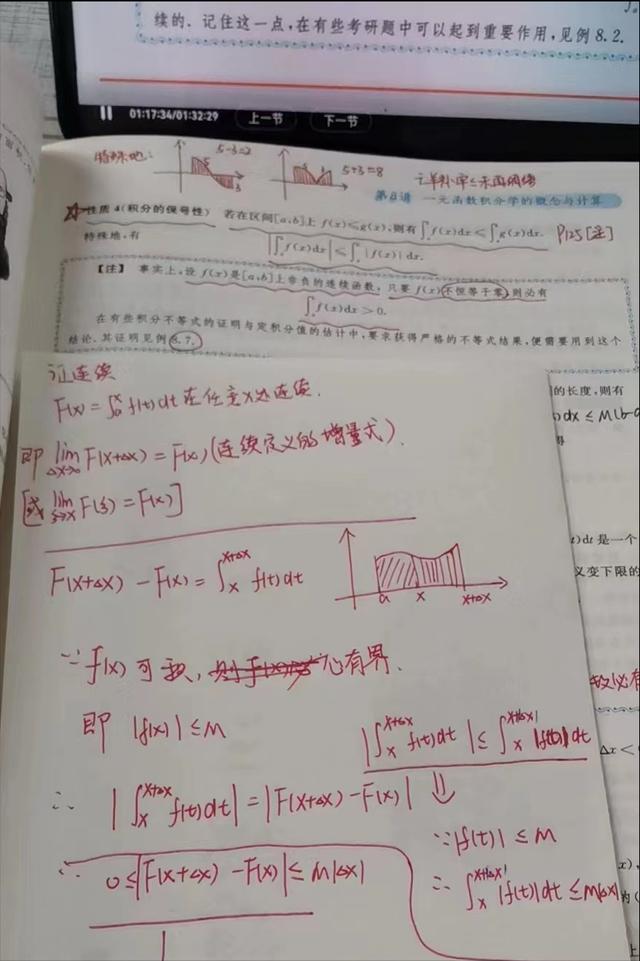 续的. 记住这一点,在有些考研题中可以起到重要作用,见例8.2.
01:17:34/01:32:29 上一节 下一节
特殊地:
5-3=2
5+3=8
第8讲 一元函数积分学的概念与计算
性质4(积分的保号性) 若在区间[a,b]上 f(x)≤g(x),则有∫ₐᵇf(x)dx≤∫ₐᵇg(x)dx. P125[注]
特殊地,有
|∫ₐᵇf(x)dx|≤∫ₐᵇ|f(x)|dx.
【注】 事实上,设 f(x)是[a,b]上非负的连续函数,只要 f(x)不恒等于零,则必有
∫ₐᵇf(x)dx>0.
在有些积分不等式的证明与定积分值的估计中,要求获得严格的不等式结果,便需要用到这个
结论,其证明见例8.7.
的长度,则有
dx≤M(b-a
证连续
F(x)=∫ₐˣf(t)dt 在任意x处连续.
即 lim Δx→0 F(x+Δx)=F(x)(连续定义的增量式).
[或 lim F(x)=F(x)]
)dt是一个
义变下限的
F(x+Δx)-F(x)=∫ₓˣ⁺ᐞˣ f(t)dt
a x x+Δx
∵f(x)可积, 必有界.
即 |f(x)|≤M
|∫ₓˣ⁺ᐞˣ f(t)dt|≤∫ₓˣ⁺|ᐞˣ| |f(t)|dt
Δx<
∴ |∫ₓˣ⁺ᐞˣ f(t)dt|=|F(x+Δx)-F(x)|
∵|f(t)|≤M
∴ 0≤|F(x+Δx)-F(x)|≤M|Δx|
∴ ∫ₓˣ⁺|ᐞˣ| |f(t)|dt≤M|Δx|